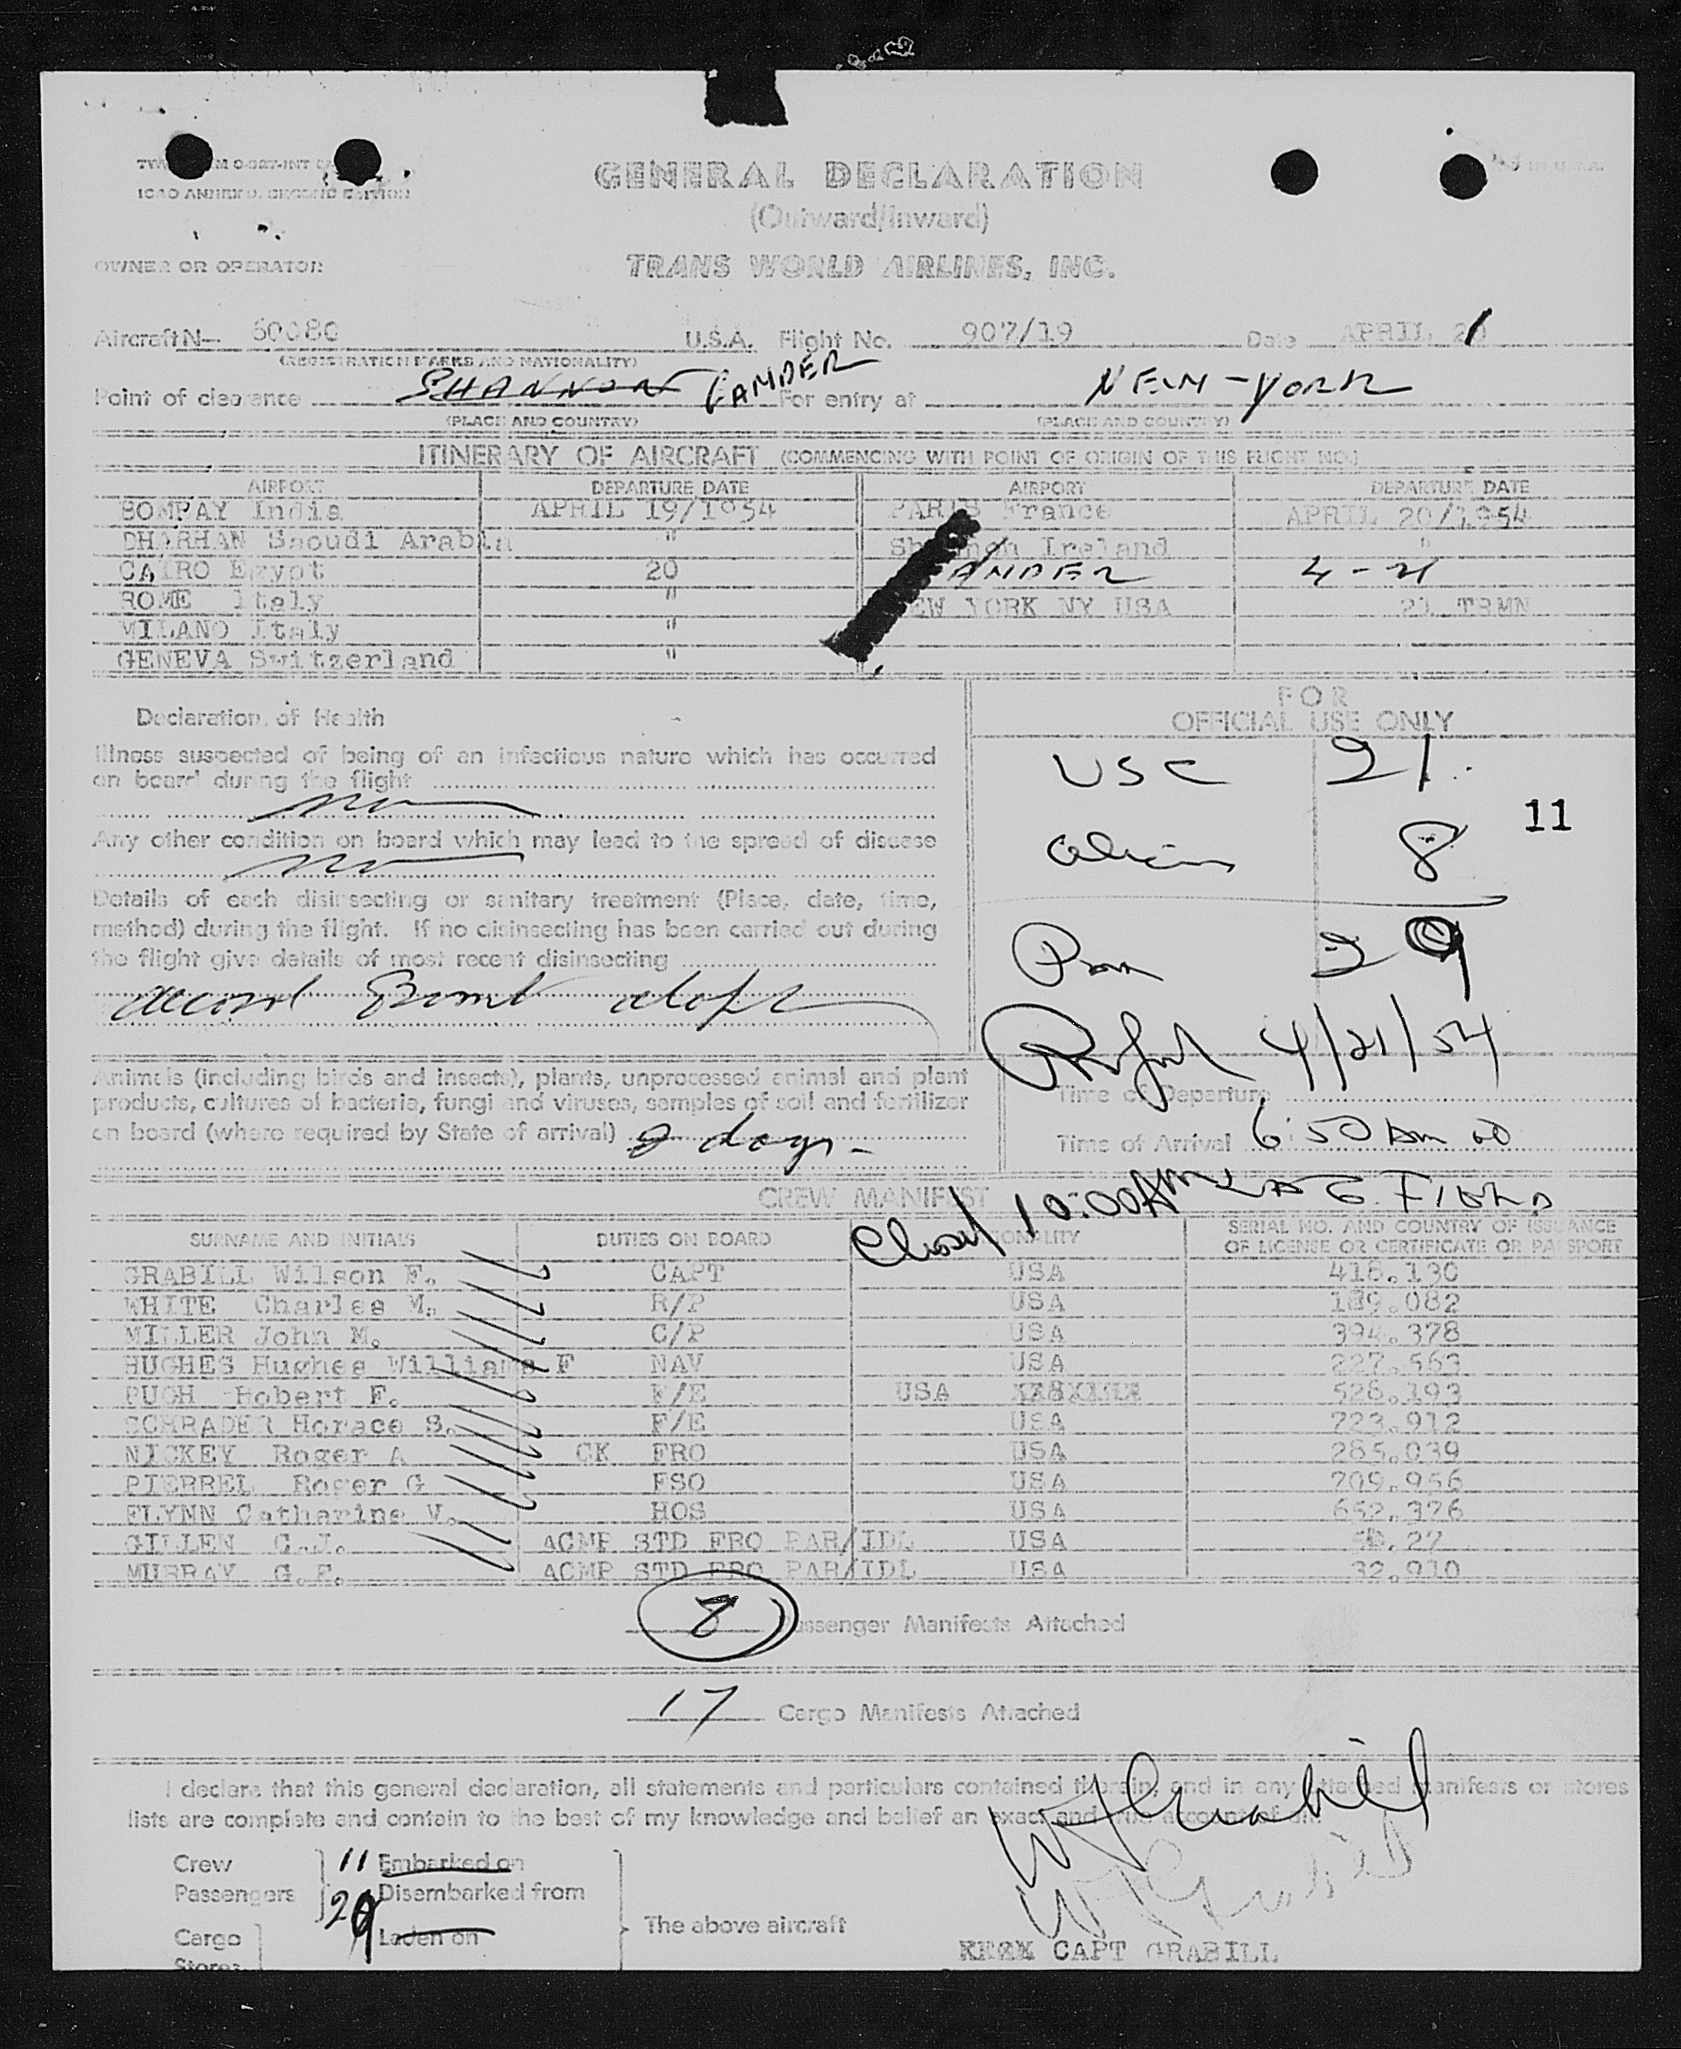 GENERAL DECLARATION
(Outward/Inward)
OWNER OR OPERATOR TRANS WORLD AIRLINES, INC.
Aircraft N- 60080 U.S.A. Flight No. 907/19 Date APRIL 21
(REGISTRATION MARKS AND NATIONALITY)
Point of clearance SHANNON GANDER For entry at NEW-YORK
(PLACE AND COUNTRY) (PLACE AND COUNTRY)
ITINERARY OF AIRCRAFT (COMMENCING WITH POINT OF ORIGIN OF THIS FLIGHT NO.)
AIRPORT DEPARTURE DATE AIRPORT DEPARTURE DATE
BOMPAY India APRIL 19/1954 PARIS France APRIL 20/1954
DHARHAN Saoudi Arabia " Shannon Ireland "
CAIRO Egypt 20 GANDER 4-21
ROME Italy " NEW YORK NY USA 21 TRMN
MILANO Italy "
GENEVA Switzerland "
FOR
OFFICIAL USE ONLY
Declaration of Health
Illness suspected of being of an infectious nature which has occurred
on board during the flight
no
Any other condition on board which may lead to the spread of disease
no
Details of each disinsecting or sanitary treatment (Place, date, time,
method) during the flight. If no disinsecting has been carried out during
the flight give details of most recent disinsecting
USC 21
11
Aliens 8
29
4/21/54
Animals (including birds and insects), plants, unprocessed animal and plant
products, cultures of bacteria, fungi and viruses, samples of soil and fertilizer
on board (where required by State of arrival) 2 dogs -
Time of Departure
Time of Arrival 6:50 am
CREW MANIFEST
Closed 10:00AM
SURNAME AND INITIALS DUTIES ON BOARD NATIONALITY SERIAL NO. AND COUNTRY OF ISSUANCE
OF LICENSE OR CERTIFICATE OR PASSPORT
GRABILL Wilson F. CAPT USA 418.130
WHITE Charles M. R/P USA 189.082
MILLER John M. C/P USA 394.378
HUGHES Hughes Williams F NAV USA 227.563
PUGH Robert F. F/E USA 528.193
SCHRADER Horace S. F/E USA 723.912
NICKEY Roger A CK FRO USA 285.039
PIERREL Roger G FSO USA 709.956
FLYNN Catharine V. HOS USA 652.376
GILLEN G.J. ACMP STD FRO PAR/IDL USA 27
MURRAY G.F. ACMP STD FRO PAR/IDL USA 32.910
8 Passenger Manifests Attached
17 Cargo Manifests Attached
I declare that this general declaration, all statements and particulars contained therein, and in any attached manifests or stores
lists are complete and contain to the best of my knowledge and belief an exact and true account of all
Crew 11 Embarked on
Passengers 29 Disembarked from
Cargo Laden on
Stores
The above aircraft
WF Grabill
WF Grabill
CAPT GRABILL